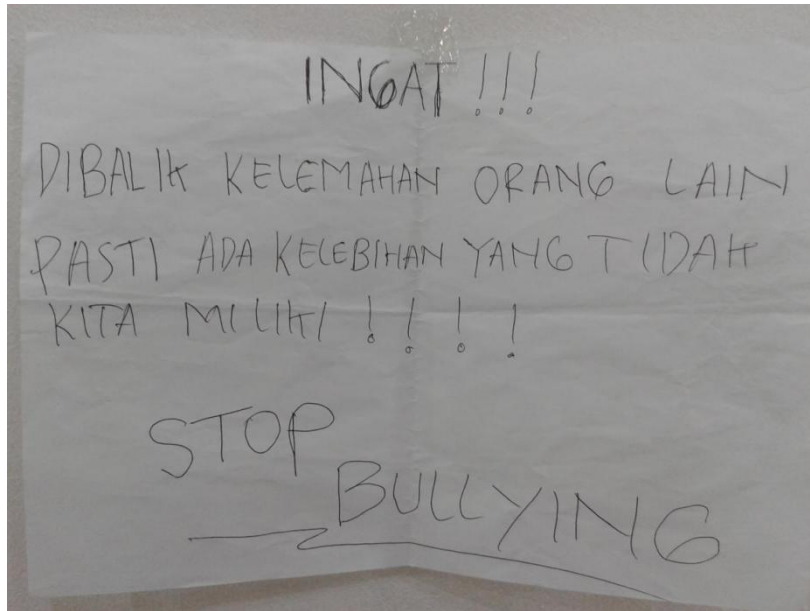 INGAT !!!
DIBALIK KELEMAHAN ORANG LAIN
PASTI ADA KELEBIHAN YANG TIDAK
KITA MILIKI ! ! ! !
STOP
BULLYING